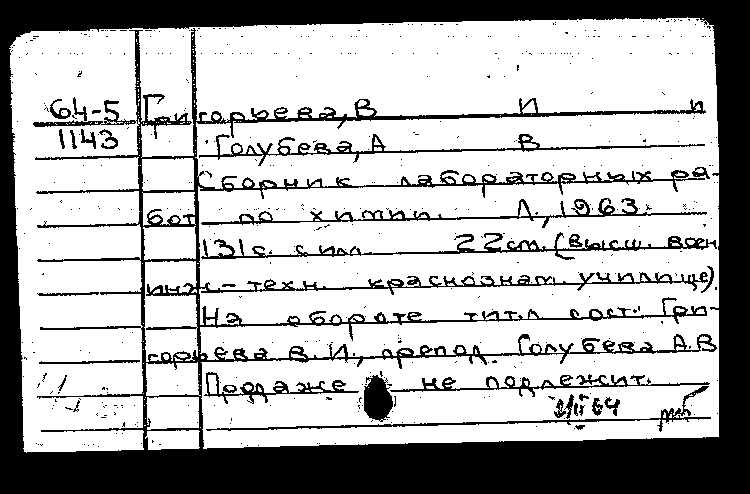 64-5 Григорьева, В И и
1143 Голубева, А В
Сборник лабораторных ра-
бот по химии. Л., 1963.
131 с. с илл. 22 см. (Высш. воен
инж.-техн. краснознам. училище)
На обороте тит.л сост.: Гри-
горьева В.И., препод. Голубева А.В
Продаже не подлежит.
64